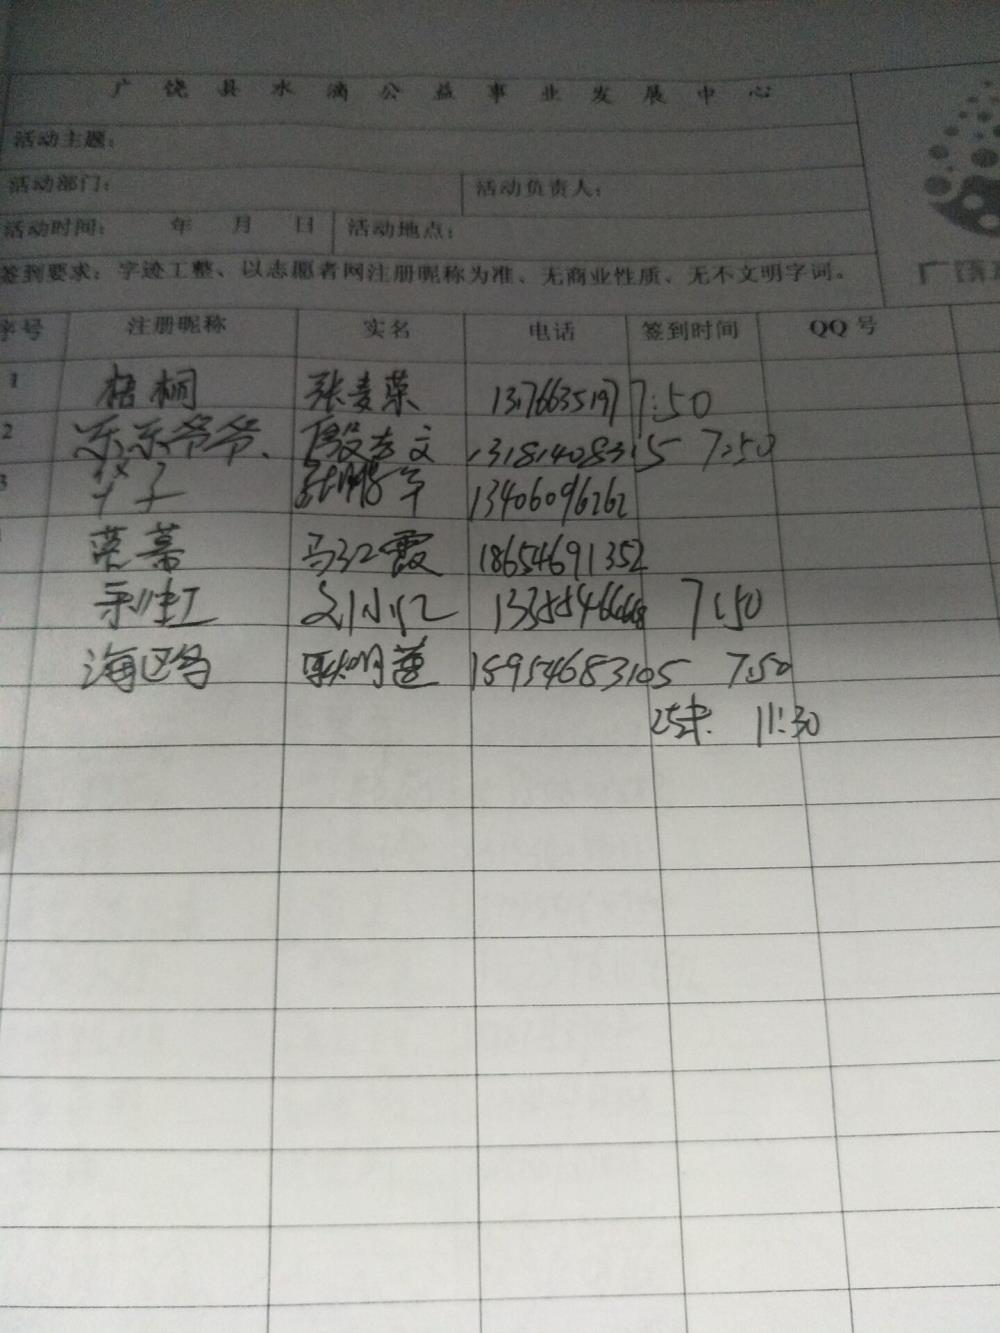 广饶县水滴公益事业发展中心
活动主题：
活动部门： 活动负责人：
活动时间： 年 月 日 活动地点：
签到要求：字迹工整、以志愿者网注册昵称为准、无商业性质、无不文明字词。
广饶
序号 注册昵称 实名 电话 签到时间 QQ号
1 梧桐 张麦荣 13176635197 7:50
2 东东爷爷、 殷吉文 13181408315 7:50
3 竹子 张鹏军 13406096262
莫慕 马红霞 18654691352
彩虹 刘小红 7:50
海区鸟 耿明莲 18954683105 7:50
结束 11:30